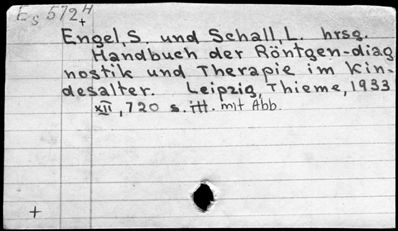 Es 5724
+
Engel, S. und Schall, L. hrsg.
Handbuch der Röntgen-diag
nostik und Therapie im Kin-
desalter. Leipzig, Thieme, 1933
XII, 720 s. ill. mit Abb.
+